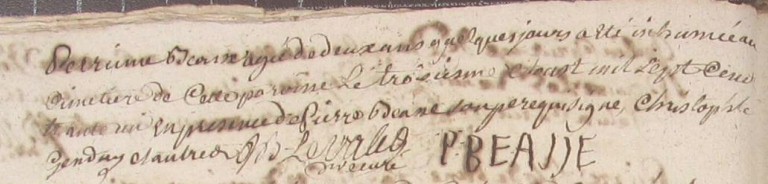 Perrinne Beasse agée de deux ans quelques jours a eté inhumée au
cimetiere de Cette paroisse Le troisieme d'aout mil Sept Cent
trente un en presence de Pierre Beasse son pere qui signe, Christophle
Gendry et autres
vic curé P: BEASSE